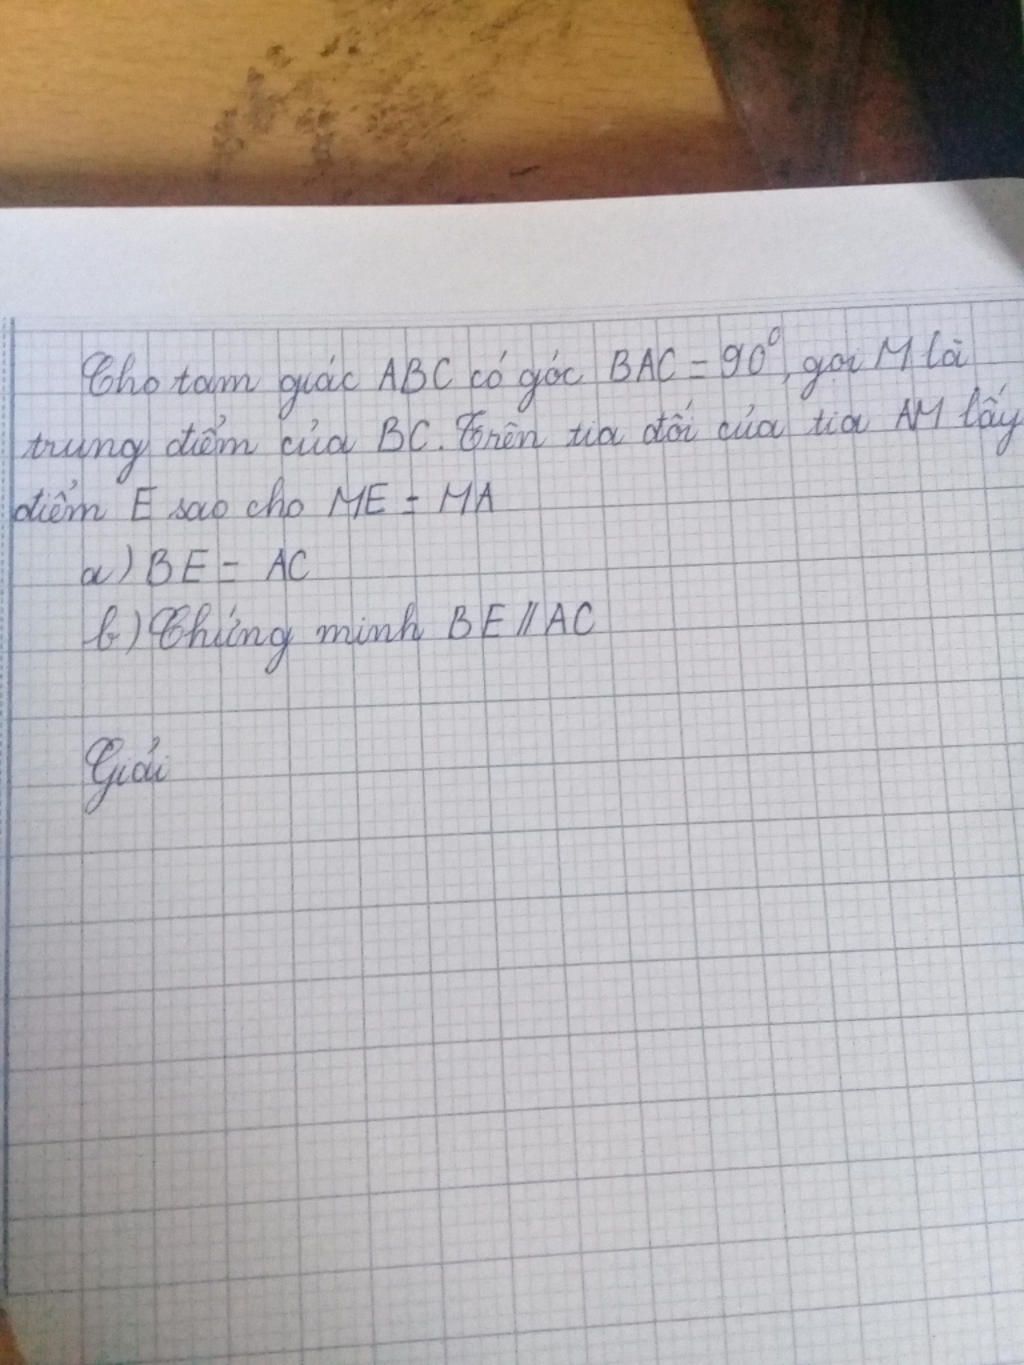 Cho tam giác ABC có góc BAC = 90⁰, gọi M là
trung điểm của BC. Trên tia đối của tia AM lấy
điểm E sao cho ME = MA
a) BE = AC
b) Chứng minh BE // AC
Giải